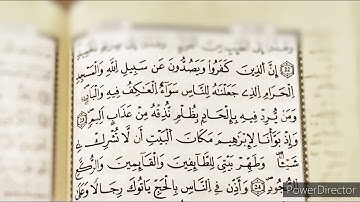 إِنَّ الَّذِينَ كَفَرُوا وَيَصُدُّونَ عَن سَبِيلِ اللَّهِ وَالْمَسْجِدِ
الْحَرَامِ الَّذِي جَعَلْنَاهُ لِلنَّاسِ سَوَاءً الْعَاكِفُ فِيهِ وَالْبَادِ
وَمَن يُرِدْ فِيهِ بِإِلْحَادٍ بِظُلْمٍ نُّذِقْهُ مِنْ عَذَابٍ أَلِيمٍ
وَإِذْ بَوَّأْنَا لِإِبْرَاهِيمَ مَكَانَ الْبَيْتِ أَن لَّا تُشْرِكْ
شَيْئًا وَطَهِّرْ بَيْتِيَ لِلطَّائِفِينَ وَالْقَائِمِينَ وَالرُّكَّعِ
السُّجُودِ وَأَذِّن فِي النَّاسِ بِالْحَجِّ يَأْتُوكَ رِجَالًا وَعَلَىٰ
PowerDirector